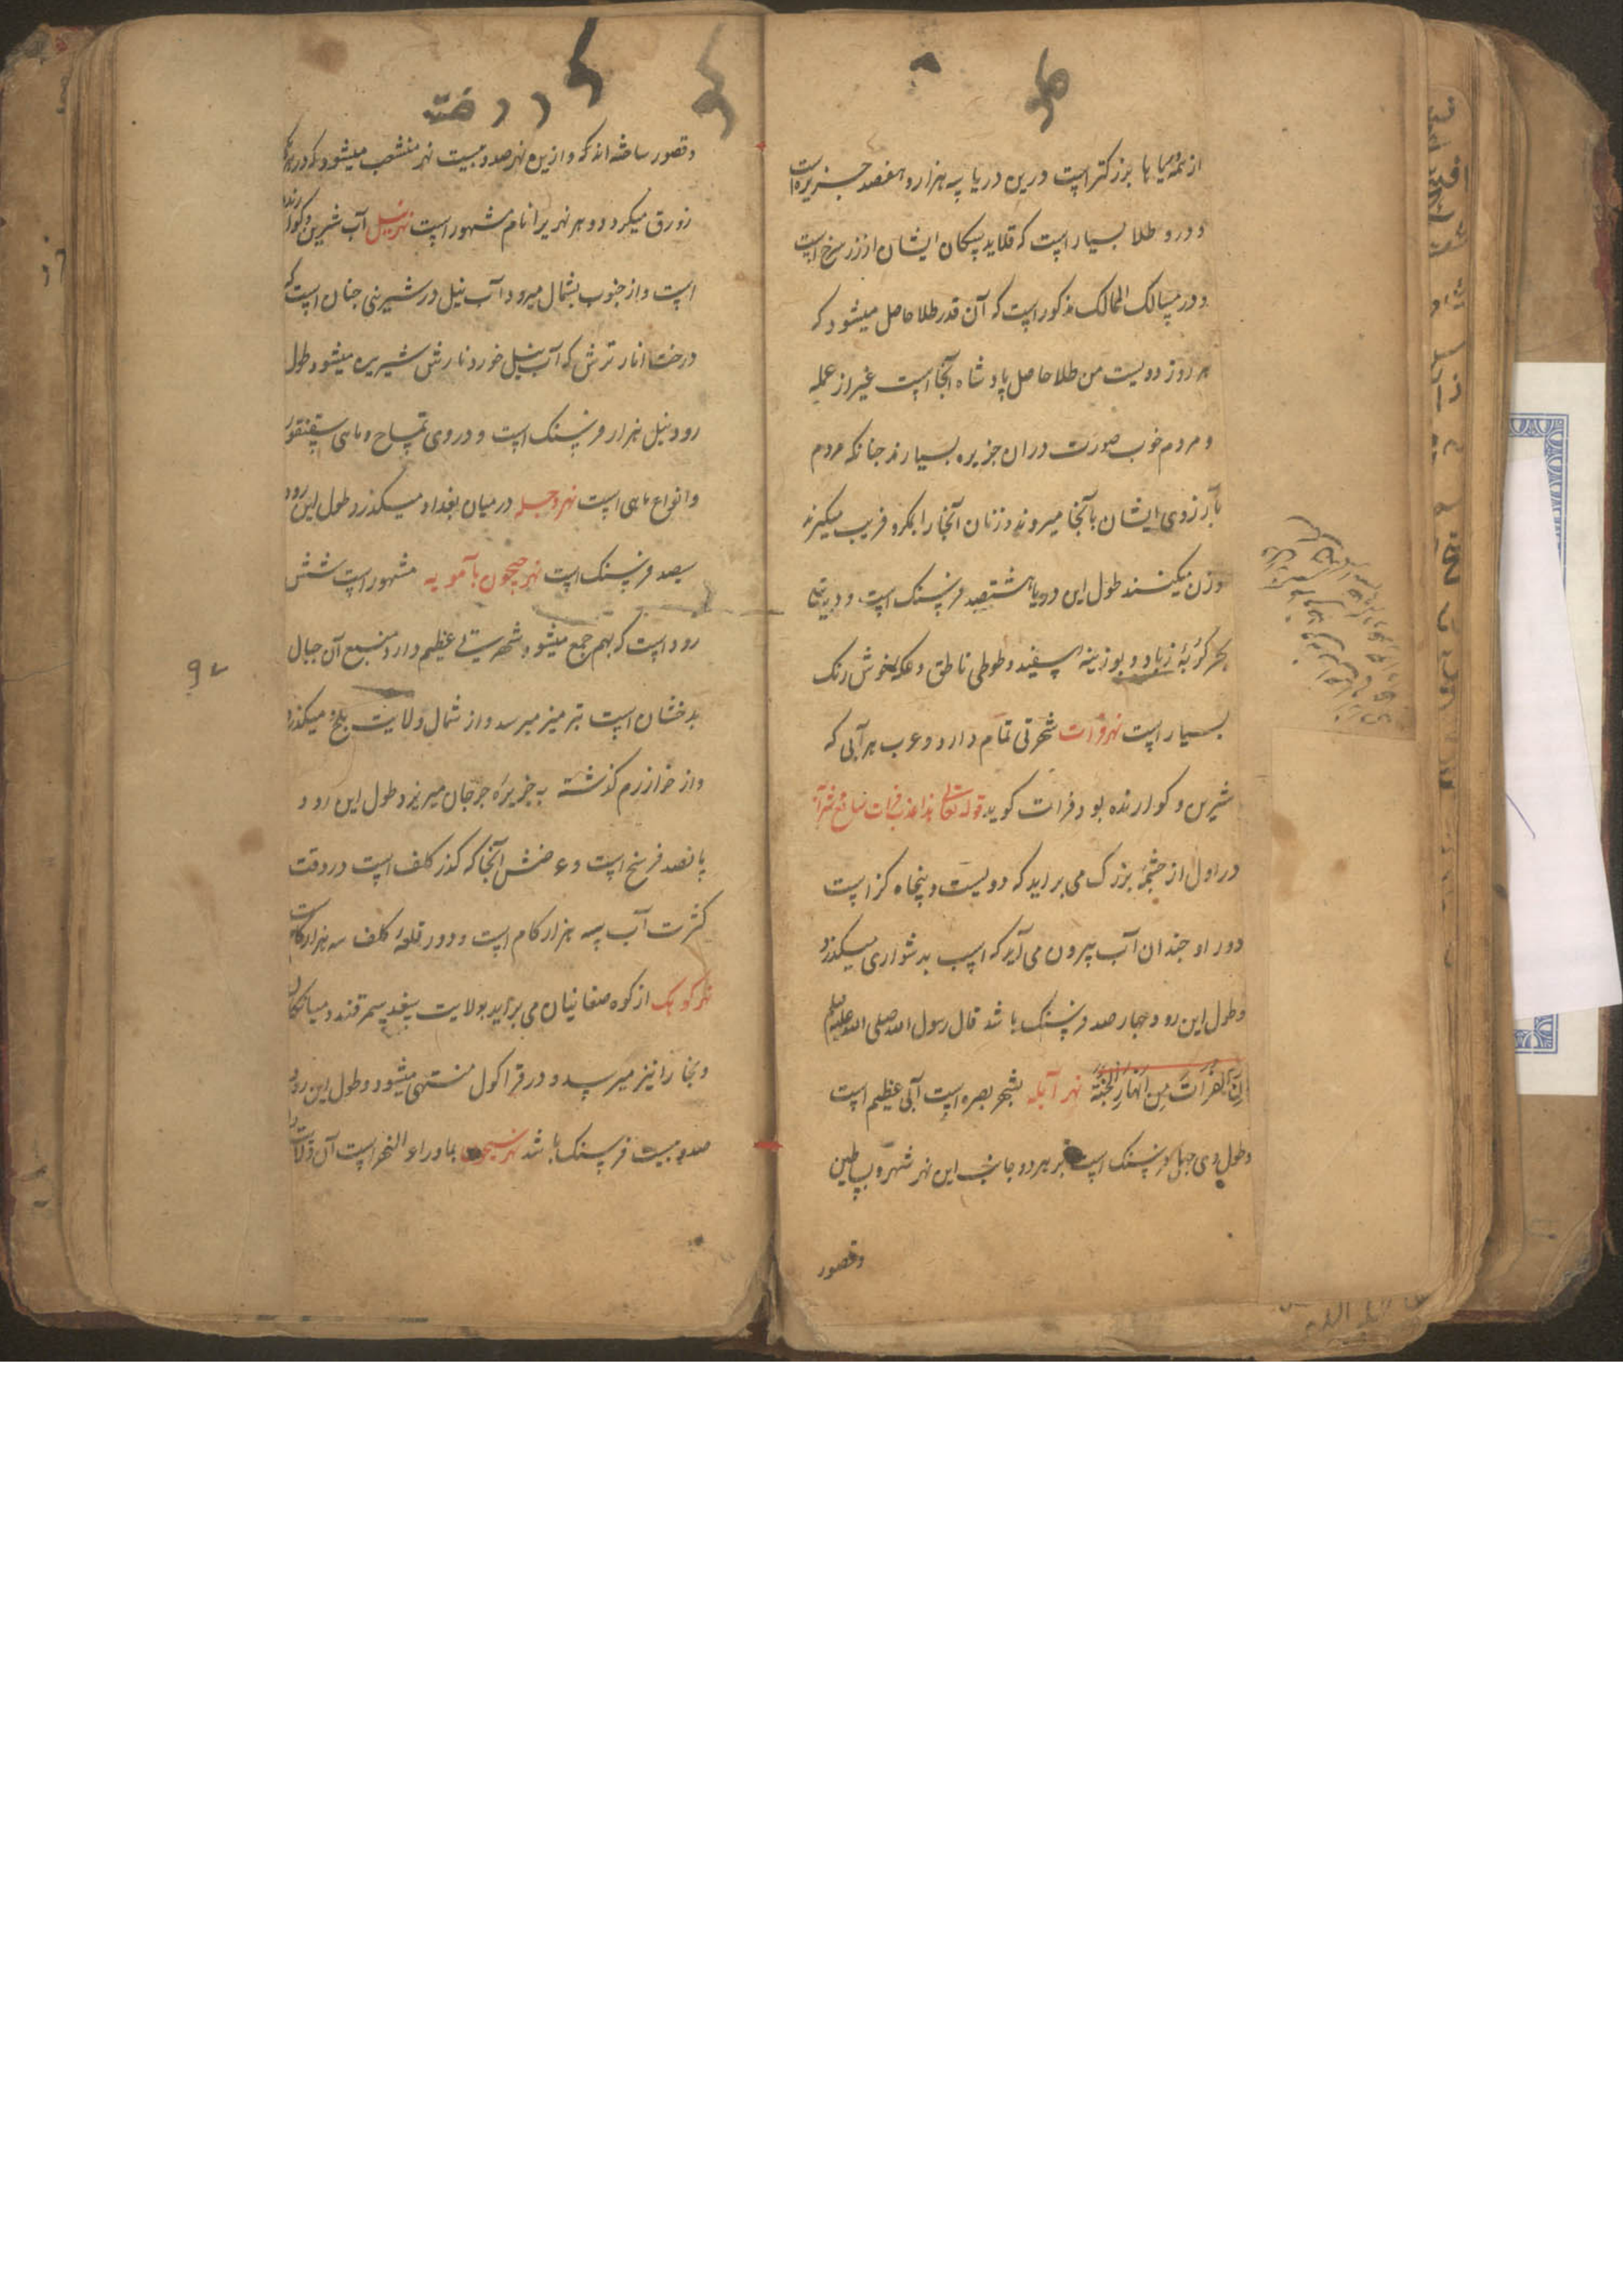 از همه دریاها بزرکتر است درین دریا سه هزار و هفصد جزیره است
و درو طلا بسیار است که قلاید سکان ایشان از زر سرخ است
و در مسالک الممالک مذکور است که آن قدر طلا حاصل میشود که
هر روز دویست من طلا حاصل پادشاه آنجا است غیر از عمله
و مردم خوب صورت دران جزیره بسیارند جنانکه مردم
بآرزوی ایشان بآنجا میروند و زنان آنجا را بمکر و فریب میکیرند
و زن میکنند طول این دریا هشتصد فرسنک است و درین
بحر کربهٔ زباد و بوزینه اسفید و طوطی ناطق و عکه خوش رنک
بسیار است نهر فرات شهرتی تمام دارد و عرب هر آبی که
شیرین و کوارنده بود فرات کوید قوله تعالی هذا عذب فرات سائغ شرابه
در اول از چشمهٔ بزرک می براید که دویست و پنجاه کز است
دور او جندان آب بیرون می آید که اسب بدشواری میکذرد
و طول این رود جهار صد فرسنک باشد قال رسول الله صلی الله علیه وسلم
اِنَّ الفُراتَ مِن اَنهارِ الجَنَّة نهر آبله بشهر بصره است آبی عظیم است
و طول وی جهل فرسنک است بر هر دو جانب این نهر شهر و بساطین
وقصور
و قصور ساخته اند که و ازین نهر صد و بیست نهر منشعب میشود که در هر یک
زورق میکردد و هر نهریرا نام مشهور است نهر نیل آب شیرین و کوارنده
است و از جنوب بشمال میرود آب نیل در شیرینی جنان است که
درخت انار ترش که آب نیل خورد نارش شیرین میشود طول
رود نیل هزار فرسنک است و در وی تمساح و ماهی سقنقور
و انواع ماهی است نهر دجله در میان بغداد میکذرد طول این رود
سیصد فرسنک است نهر جیحون بآمویه مشهور است شش
رود است که بهم جمع میشود شهرتی عظیم دارد منبع آن جبال
بدخشان است بترمیز میرسد و از شمال ولایت بلخ میکذرد
و از خوارزم کذشته به جزیرهٔ جرجان میریزد طول این رود
پانصد فرسخ است و عرضش آنجا که کذر کلف است در وقت
کثرت آب سه هزار کام است و دور قلعهٔ کلف سه هزار کام است
نهر کوهک از کوه صغانیان می براید بولایت سغد سمرقند و میانکال
و بخارا نیز میرسد و در قراکول منتهی میشود و طول این رود
صد و بیست فرسنک باشد نهر سیحون بماوراء النهر است آن ولایت را